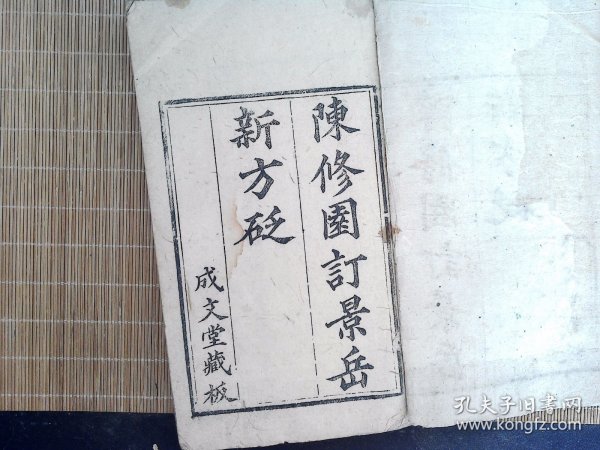 陳修園訂景岳
新方砭
成文堂藏板
孔夫子旧书网
kongfz.com